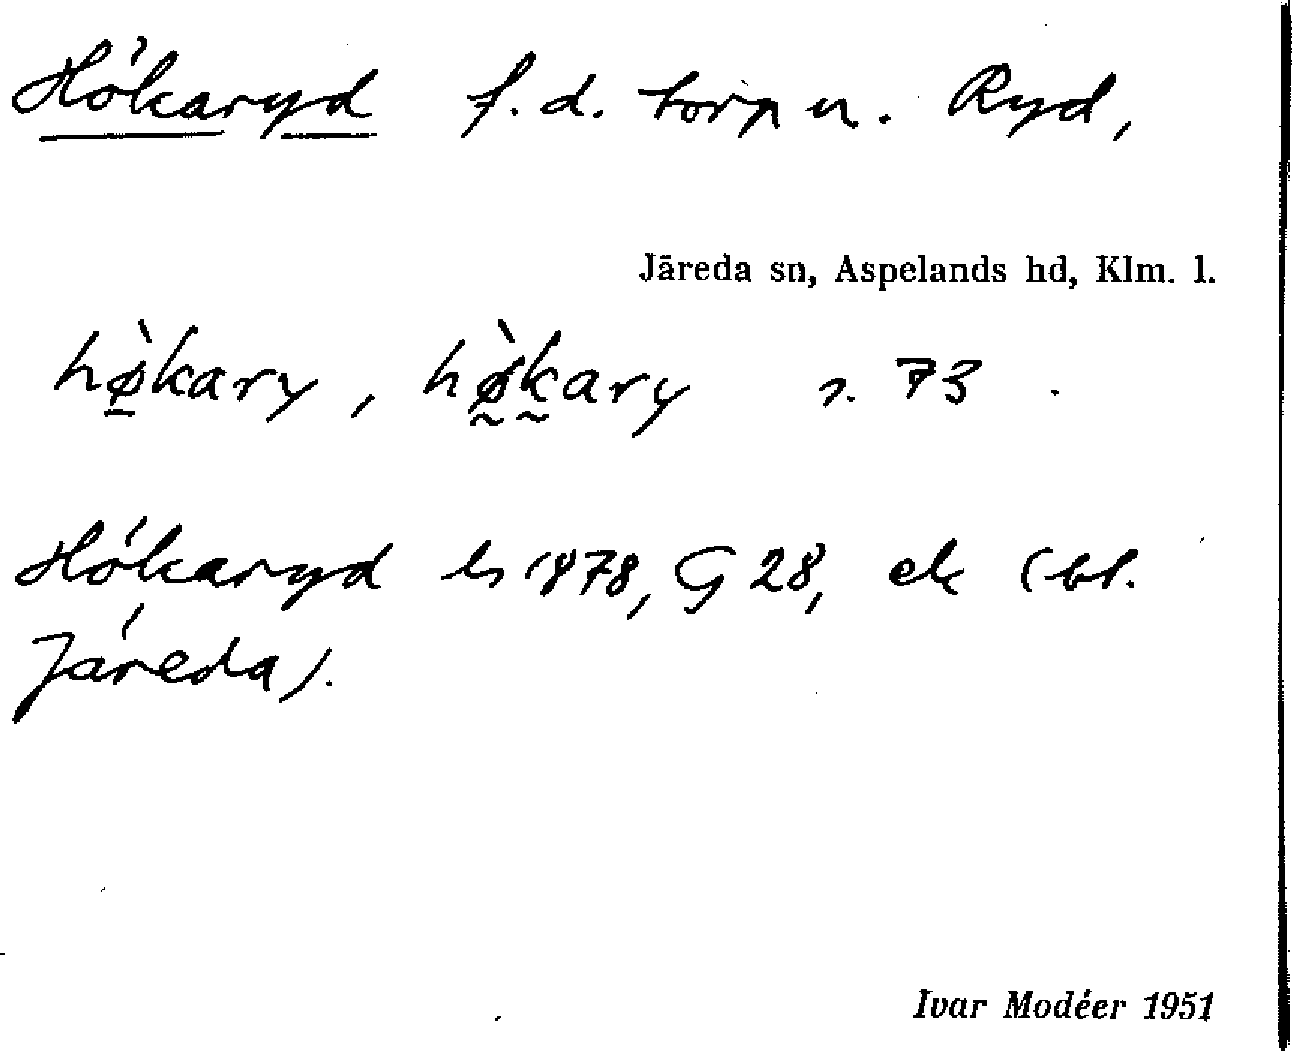 Hökaryd f.d. torp u. Ryd,
Järeda sn, Aspelands hd, Klm. l.
hø̀kary, hø̀kary s. 73.
Hökaryd ls 1878, G 28, ek (bl.
Järeda).
Ivar Modéer 1951